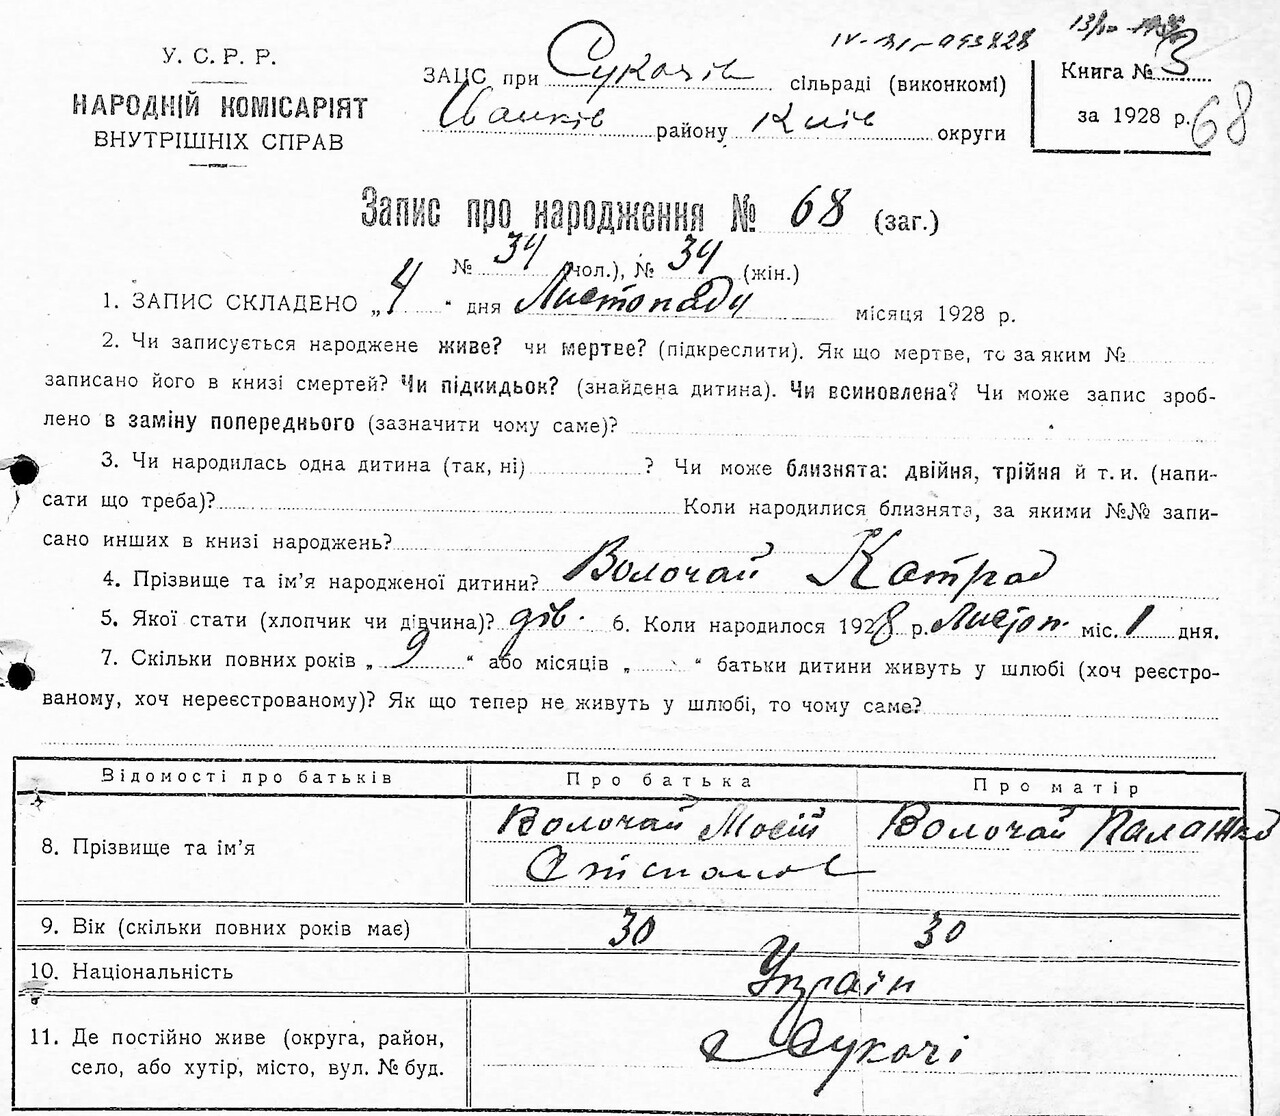 У. С. Р. Р.
НАРОДНІЙ КОМІСАРІЯТ
ВНУТРІШНІХ СПРАВ
IV-БІ-093828
ЗАЦС при Сукачів сільраді (виконкомі)
Іванків району Київ округи
Книга № 3
за 1928 р.
68
Запис про народження № 68 (заг.)
№ 34 (чол.), № 34 (жін.)
1. ЗАПИС СКЛАДЕНО „4“ дня Листопаду місяця 1928 р.
2. Чи записується народжене живе? чи мертве? (підкреслити). Як що мертве, то за яким №
записано його в книзі смертей? Чи підкидьок? (знайдена дитина). Чи всиновлена? Чи може запис зроб-
лено в заміну попереднього (зазначити чому саме)?
3. Чи народилась одна дитина (так, ні) ? Чи може близнята: двійня, трійня й т. и. (напи-
сати що треба)? Коли народилися близнята, за якими №№ запи-
сано инших в книзі народжень?
4. Прізвище та ім’я народженої дитини? Волочай Катря
5. Якої стати (хлопчик чи дівчина)? дів. 6. Коли народилося 1928 р. Листоп. міс. 1 дня.
7. Скільки повних років „ 9 “ або місяців „ “ батьки дитини живуть у шлюбі (хоч реєстро-
ваному, хоч нереєстрованому)? Як що тепер не живуть у шлюбі, то чому саме?
Відомості про батьків Про батька Про матір
8. Прізвище та ім’я Волочай Мосій Волочай Палажка
9. Вік (скільки повних років має) 30 30
10. Національність Україн
11. Де постійно живе (округа, район,
село, або хутір, місто, вул. № буд. с Сукачі